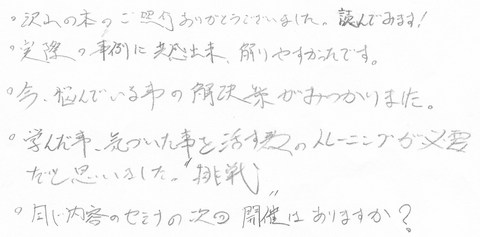 ・沢山の本のご紹介ありがとうございました。読んでみます!
・実際の事例に共感出来、解りやすかったです。
・今、悩んでいる事の解決策がみつかりました。
・学んだ事、気づいた事を活す為のトレーニングが必要
だと思いました。"挑戦"
・同じ内容のセミナの次回開催はありますか?